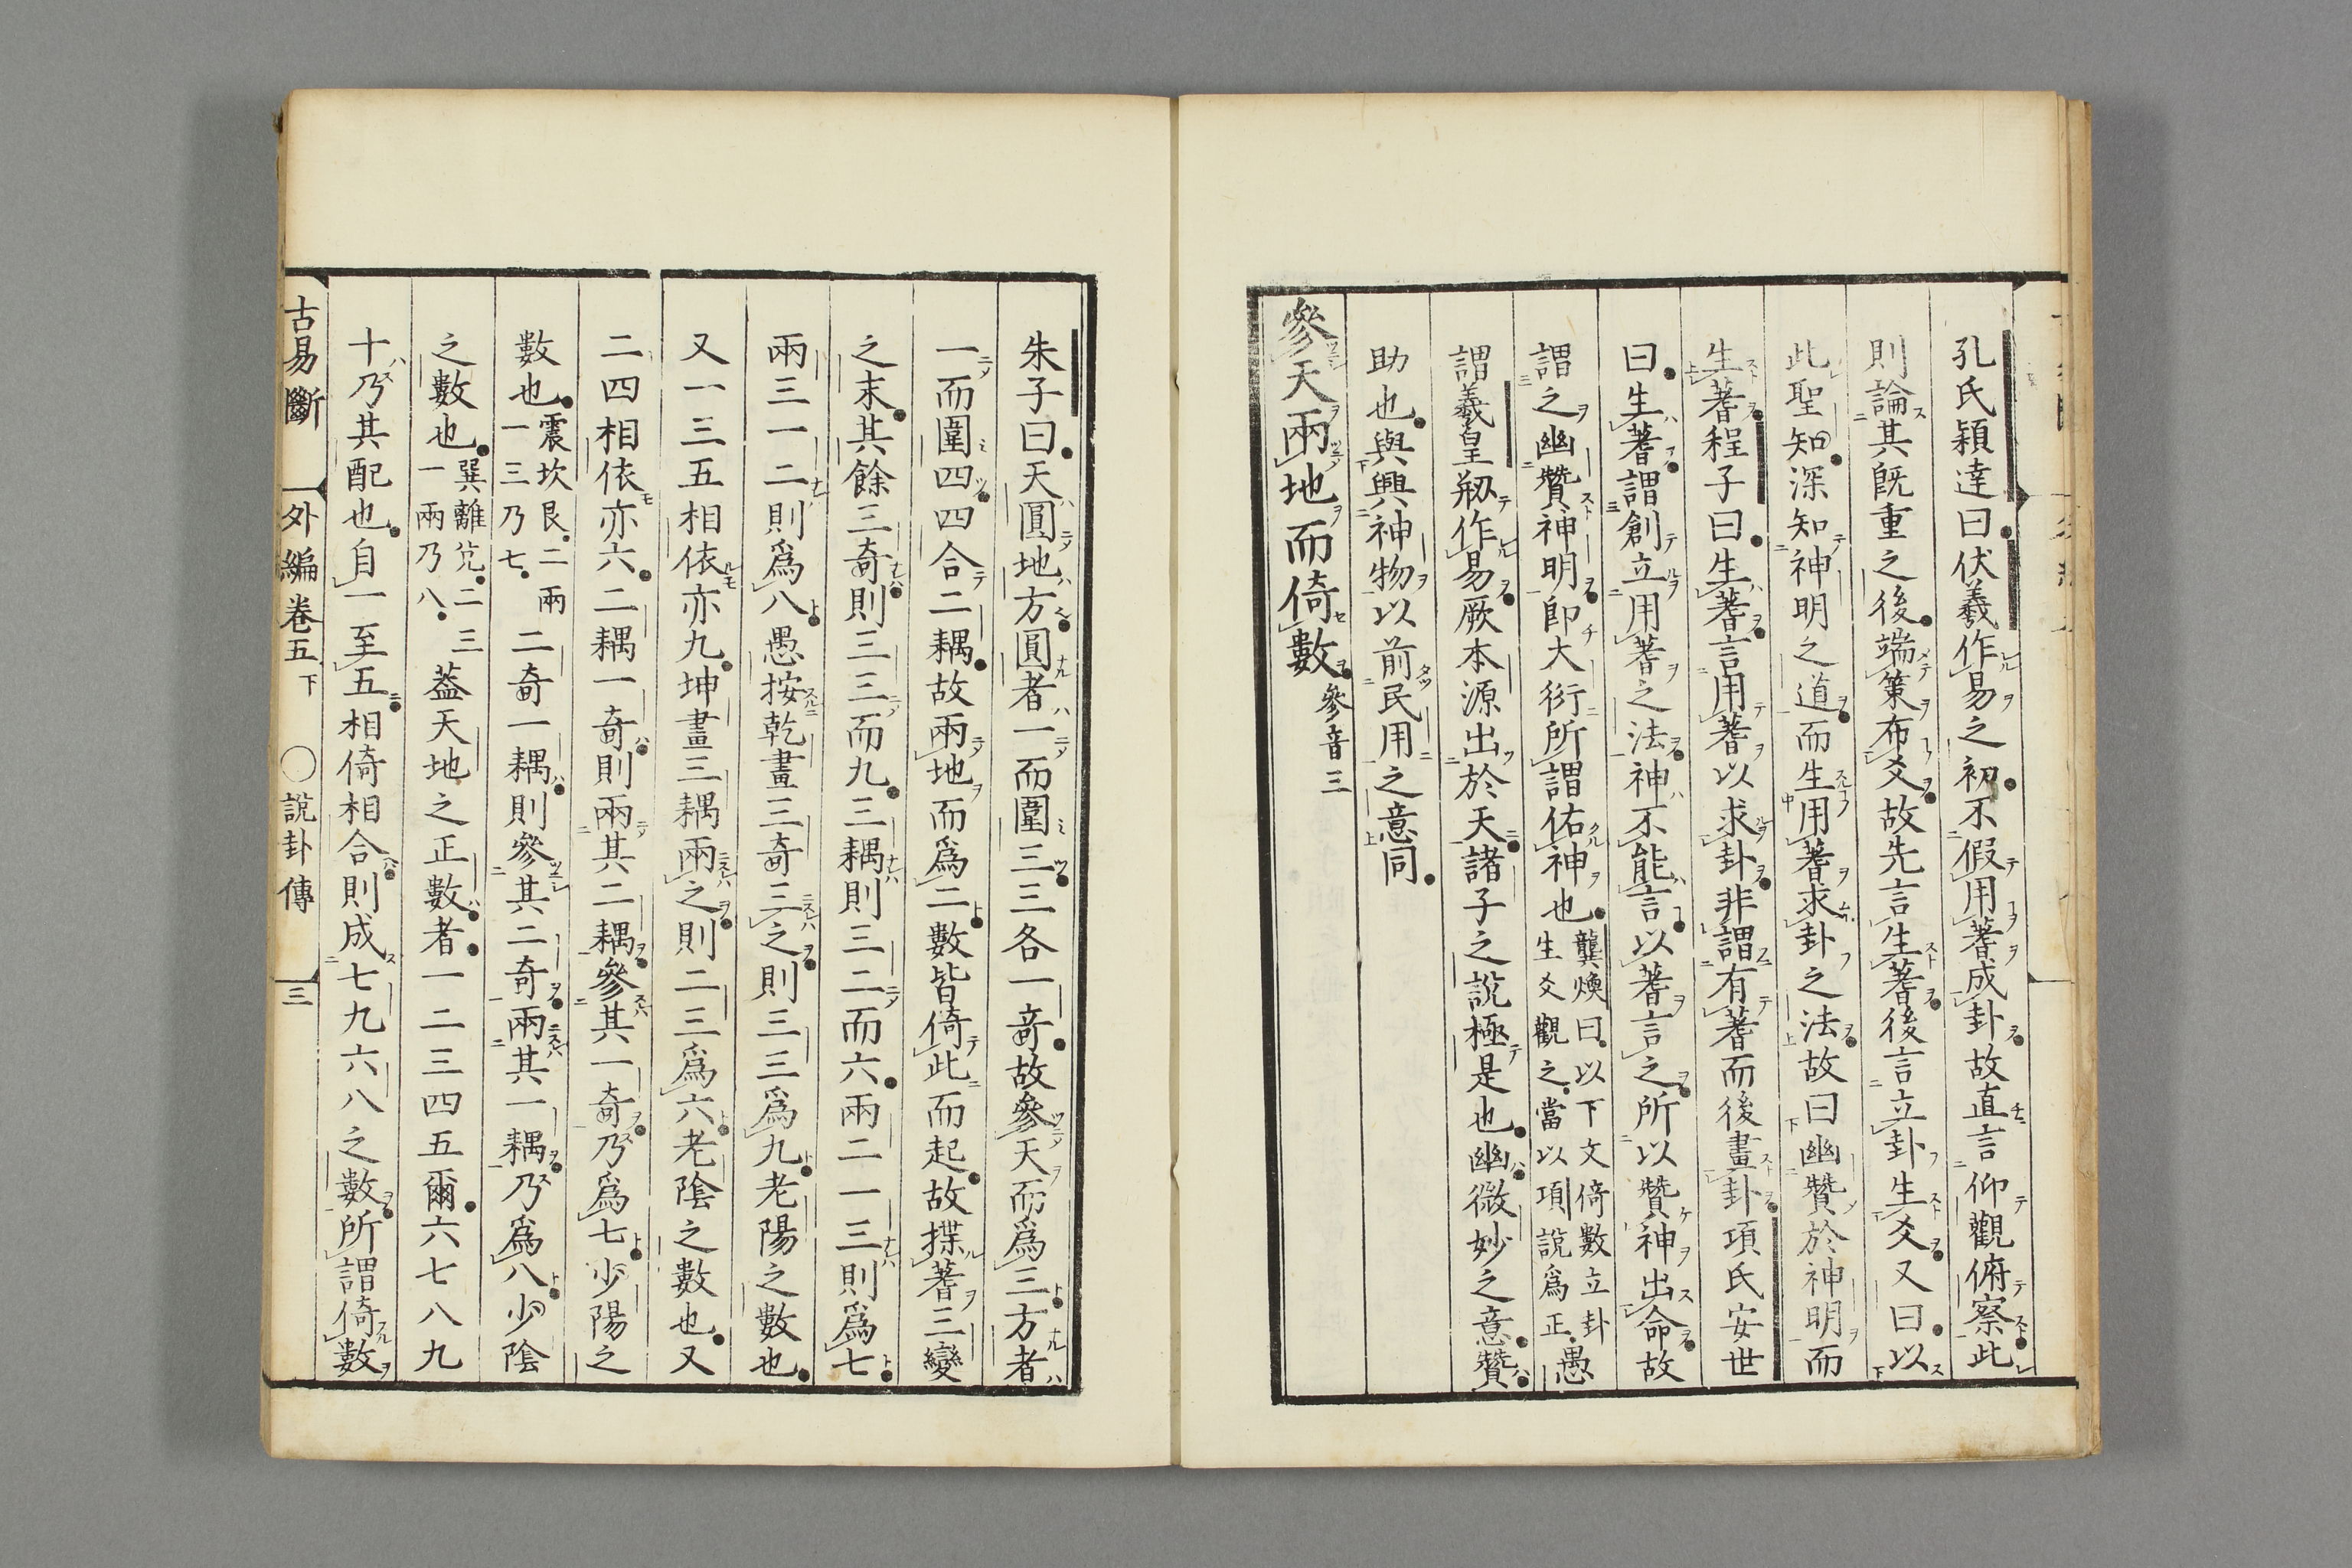 孔氏穎達曰伏羲作易之初不假用蓍成卦故直言仰觀俯察此
則論其既重之後端策布爻故先言生蓍後言立卦生爻又曰以
此聖知深知神明之道而生用蓍求卦之法故曰幽贊於神明而
生蓍程子曰生蓍言用蓍以求卦非謂有蓍而後畫卦項氏安世
曰生蓍謂創立用蓍之法神不能言以蓍言之所以贊神出命故
謂之幽贊神明卽大衍所謂佑神也龔煥曰以下文倚數立卦
生爻觀之當以項說爲正愚
謂羲皇剏作易厥本源出於天諸子之說極是也幽微妙之意贊
助也與興神物以前民用之意同
參天兩地而倚數參音三
朱子曰天圓地方圓者一而圍三三各一竒故參天而爲三方者
一而圍四四合二耦故兩地而爲二數皆倚此而起故揲蓍三變
之末其餘三竒則三三而九三耦則三二而六兩二一三則爲七
兩三一二則爲八愚按乾畫三竒三之則三三爲九老陽之數也
又一三五相依亦九坤畫三耦兩之則二三爲六老陰之數也又
二四相依亦六二耦一竒則兩其二耦參其一竒乃爲七少陽之
數也震坎艮二兩
一三乃七二竒一耦則參其二竒兩其一耦乃爲八少陰
之數也巽離兌二三
一兩乃八葢天地之正數者一二三四五爾六七八九
十乃其配也自一至五相倚相合則成七九六八之數所謂倚數
古易斷 外編卷五下 〇說卦傳 三